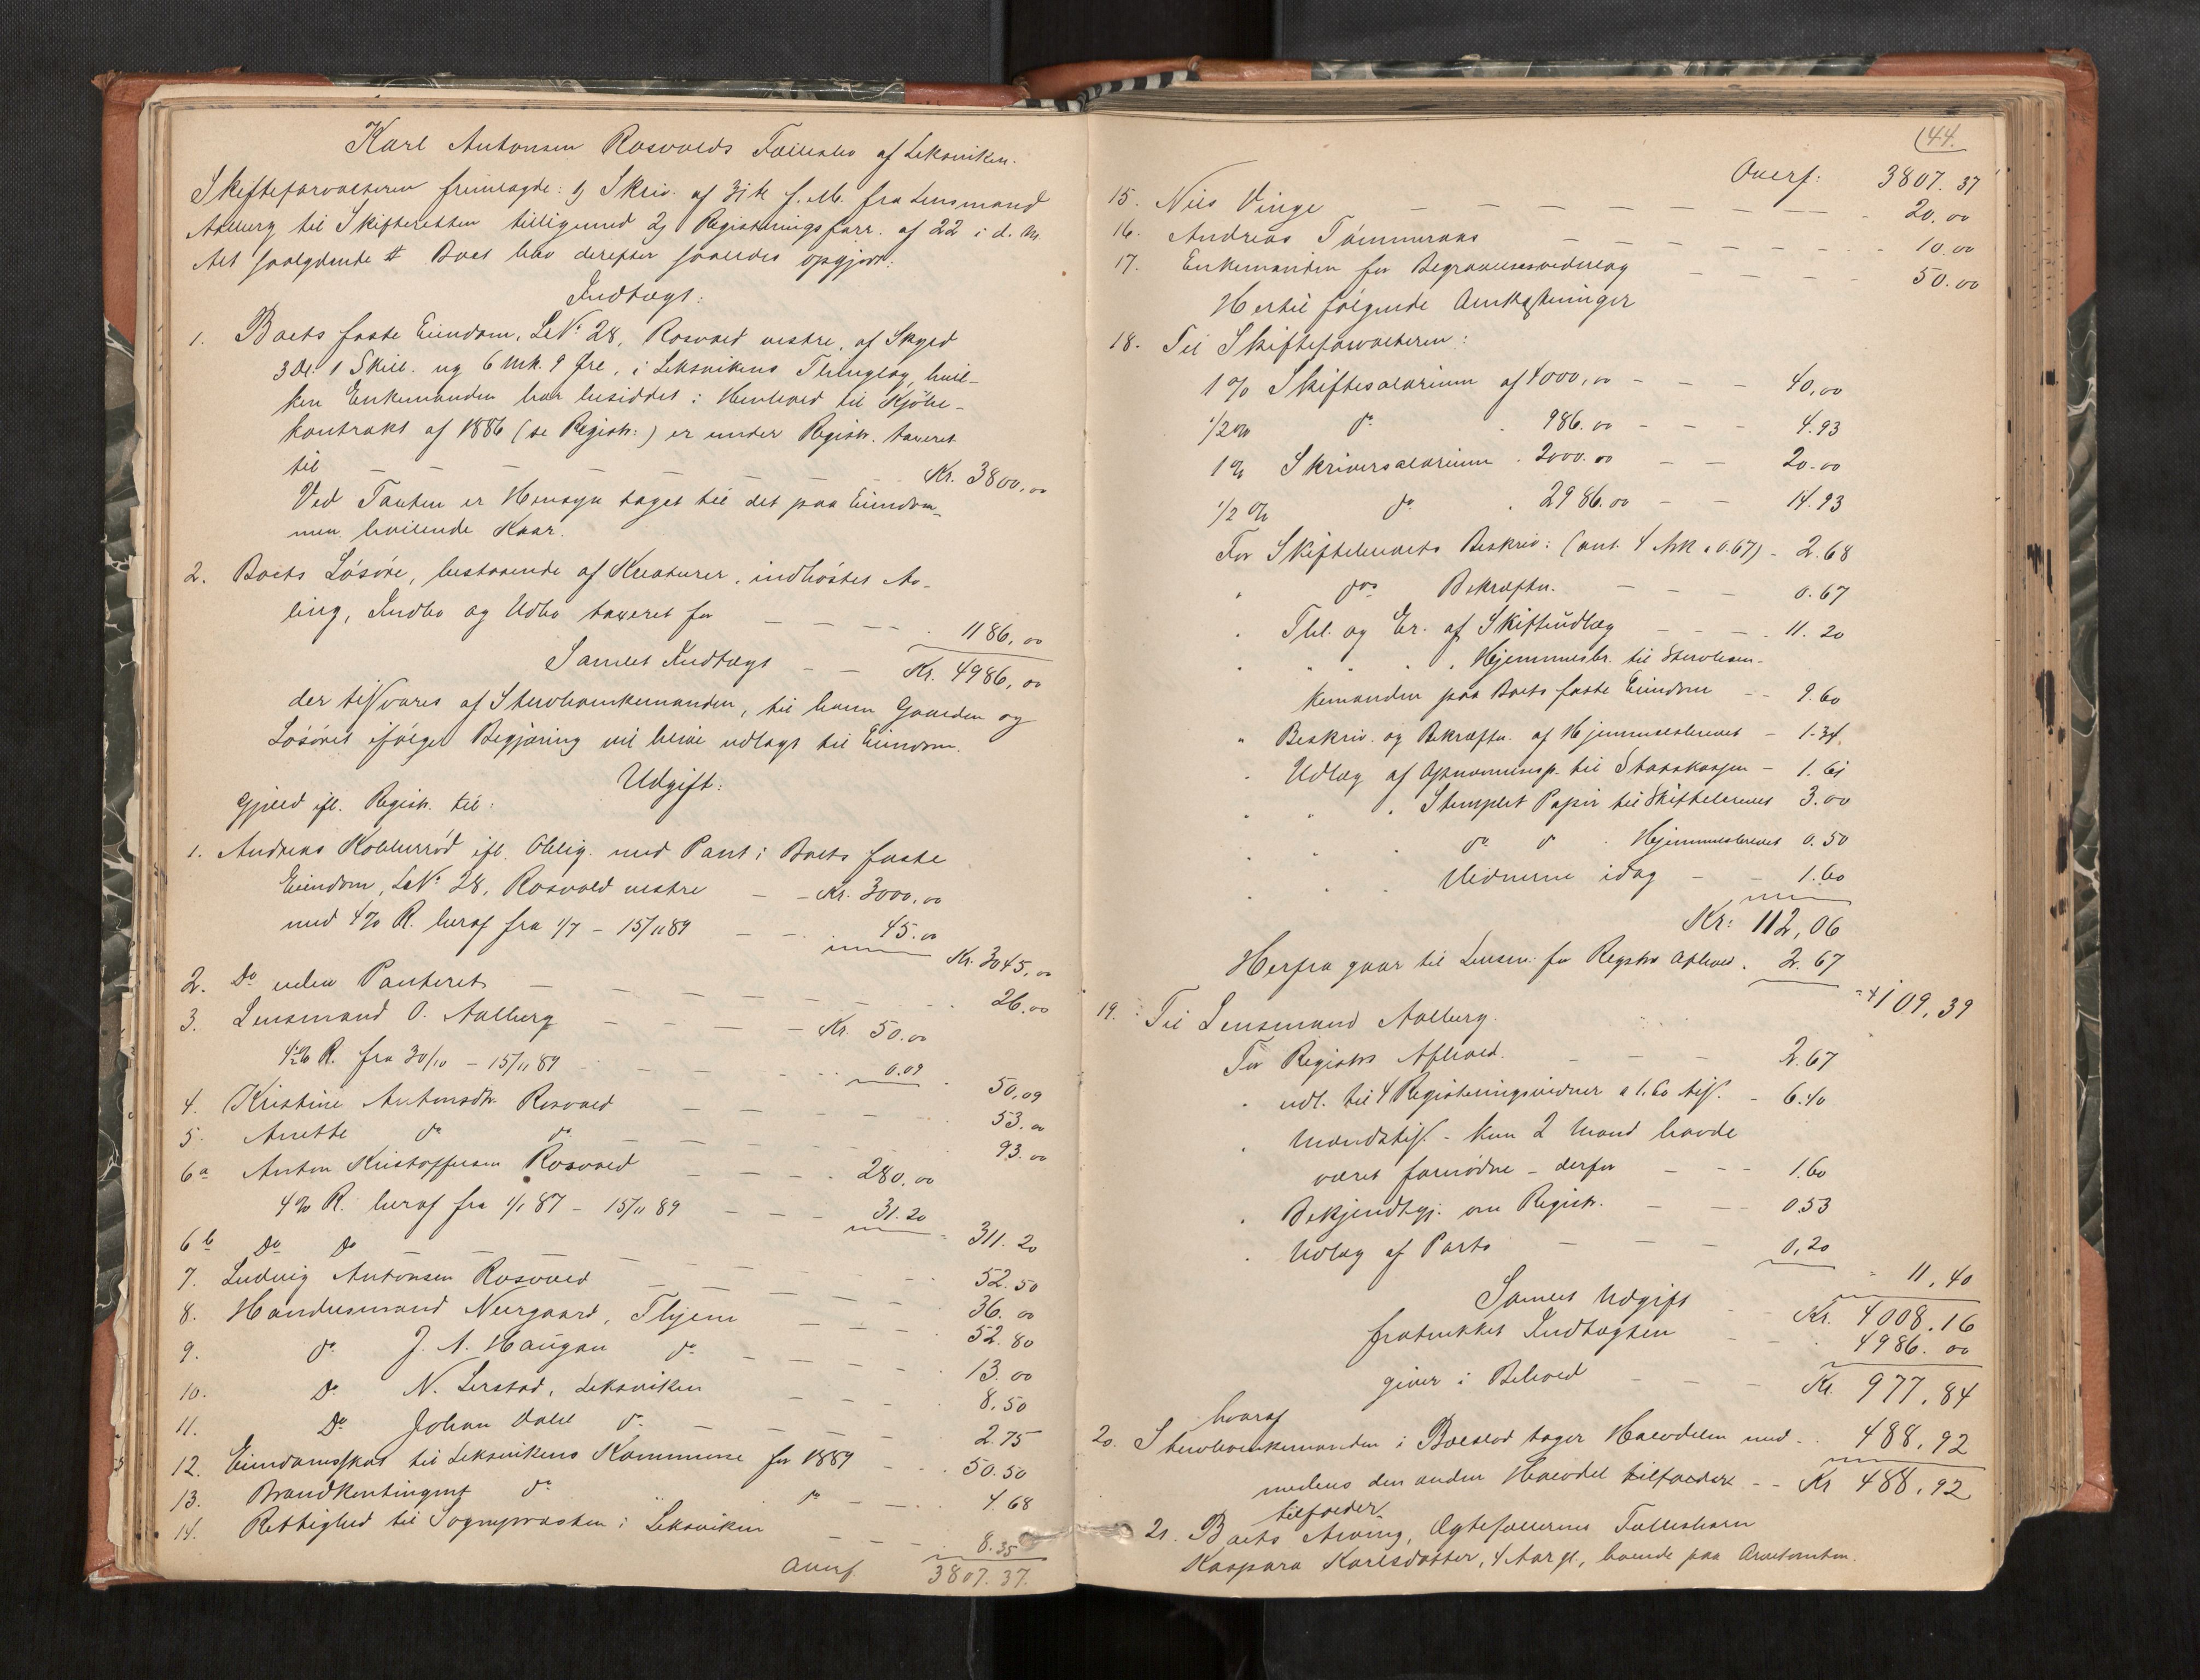 Karl Antonsen Rosvolds Fællesbo af Leksviken.
Skifteforvalteren fremlagde: 1) Skriv. af 31te f. M. fra Lensmand
Aalberg til Skifteretten tilligemed 2) Registreringsforr. af 22 i d. M.
Boet blev derefter saaledes opgjort:
Indtægt:
1. Boets faste Eiendom, L.N: 28, Rosvold vestre, af Skyld
3 Dl. 1 Skill. ny 6 Mk. 9 Øre, i Leksvikens Thinglag, hvil-
ken Enkemanden har besiddet i Henhold til Kjøbe-
kontrakt af 1886 (se Registr:) er under Registr. taxeret
til — — — — — — Kr. 3800,00
Ved Taxten er Hensyn taget til det paa Eiendom-
men hvilende Kaar.
2. Boets Løsøre, bestaaende af Kreaturer, indhøstet Av-
ling, Indbo og Udbo taxeret for — — — — 1186,00
Samlet Indtægt — — Kr. 4986,00
der tilsvares af Stervboenkemanden, til hvem Gaarden og
Løsøret ifølge Begjæring vil blive udlagt til Eiendom.
Udgift:
Gjæld ifl. Registr. til:
1. Andreas Kobberrød ifl. Oblig. med Pant i Boets faste
Eiendom, L.N: 28, Rosvold vestre — — Kr. 3000,00
med 4% R. heraf fra 1/7 – 15/11 89 — — 45.00
Kr. 3045,00
2. Do uden Panteret — — — — — — 26.00
3. Lensmand O. Aalberg — — — — Kr. 50.00
4½% R. fra 30/10 – 15/11 89 — — 0.09
50,09
4. Kristine Antonsdtr. Rosvold — — — — 53.00
5. Anette do do — — — — 93.00
6a Anton Kristoffersen Rosvold — — — 280,00
4% R. heraf fra 1/1 87 – 15/11 89 — — — 31.20
311.20
6b Do Do — — — — — 52.50
7. Ludvig Antonsen Rosvold — — — — 36.00
8. Handelsmand Neergaard, Thjem — — — 52.80
9. do J. A. Haugan do — — — — 13.00
10. Do N. Lerstad, Leksviken — — — 8.50
11. Do Johan Dahl do — — — — 2.75
12. Eiendomsskat til Leksvikens Kommune for 1889 — — 50.50
13. Brandkontingent do do — — 4.68
14. Rettighed til Sognepræsten i Leksviken — — — 8.35
Overf. 3807.37.
44.
Overf: 3807.37
15. Nils Vinge — — — — — — 20.00
16. Andreas Tømmeraas — — — — — 10.00
17. Enkemanden for Begravelsesvederlag — — — 50.00
Hertil følgende Omkostninger
18. Til Skifteforvalteren:
1% Skiftesalarium af 4000,00 — — — 40,00
1/2% do . 986.00 — — — 4.93
1% Skriversalarium . 2000.00 — — 20.00
1/2% do . 2986.00 — — 14.93
For Skiftebrevets Beskriv: (ant. 4 Ark a 0.67) - 2.68
" dos Bekræftn. — — — 0.67
" Thl. og Er. af Skifteudlæg — — — 11.20
" " " " Hjemmelsbr. til Stervboen-
kemanden paa Boets faste Eiendom — — 9.60
" Beskriv. og Bekræftn. af Hjemmelsbrevet — 1.34
" Udlæg af til Statskassen — 1.61
" " " Stemplet Papir til Skiftebrevet 3.00
" " " do do " Hjemmelsbrevet 0.50
" " " Vidnerne idag — — 1.60
Kr: 112,06
Herfra gaar til Lensm. for Registrs Afhold . 2.67
109,39
19. Til Lensmand Aalberg.
For Registrs Afhold. — — — 2.67
" udl. til 4 Registreringsvidner a 1,60 tils. — 6.40
" Mandstils. - kun 2 Mand havde
været fornødne – derfor — — — 1.60
" Bekjendtgj. om Registr. — — — 0.53
" Udlæg af Porto — — — 0,20
11,40
Samlet Udgift — — Kr. 4008.16
fratrukket Indtægten — — 4986.00
giver i Behold — — — Kr. 977,84
hvoraf
20. Stervboenkemanden i Boeslod tager Halvdelen med — 488,92
medens den anden Halvdel tilfalder — — Kr 488,92
tilfalder
21. Boets Arving, Ægtefællernes Fællesbarn
Kaspara Karlsdatter, 4 Aar gl.,